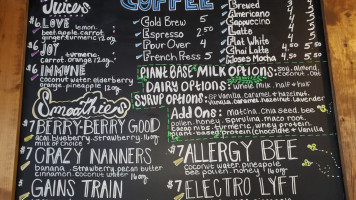 Juices
COFFEE
$6 LOVE lemon,
beet, apple, carrot,
ginger, turmeric 12oz
$6 JOY turmeric,
carrot, orange, apple
$6 IMMUNE
coconut water, elderberry
orange, pineapple 12oz
Smoothies
$7 BERRY-BERRY GOOD
acai, blueberry, strawberry,
milk of choice
$7 CRAZY NANNERS
banana, strawberry, pecan butter
cinnamon, coconut water 16oz
GAINS TRAIN
Cold Brew 5
Espresso 2
Pour Over 4
French Press 5
Brewed 3
Americano
Cappuccino
Latte
Flat White
Chai Latte
Mocha
PLANT BASE MILK OPTIONS: soy, almond,
coconut, oat
DAIRY OPTIONS: whole milk, half + half
SYRUP OPTIONS: vanilla, caramel, hazelnut
vanilla, caramel, hazelnut, lavender
Add Ons: matcha, chia seed, bee
pollen, honey, spirulina, maca root,
cacao nibs, turmeric, whey protein,
plant-based protein (chocolate + Vanilla
$7 ALLERGY BEE
coconut water, pineapple
bee pollen, honey 16oz
$7 ELECTRO LYFT